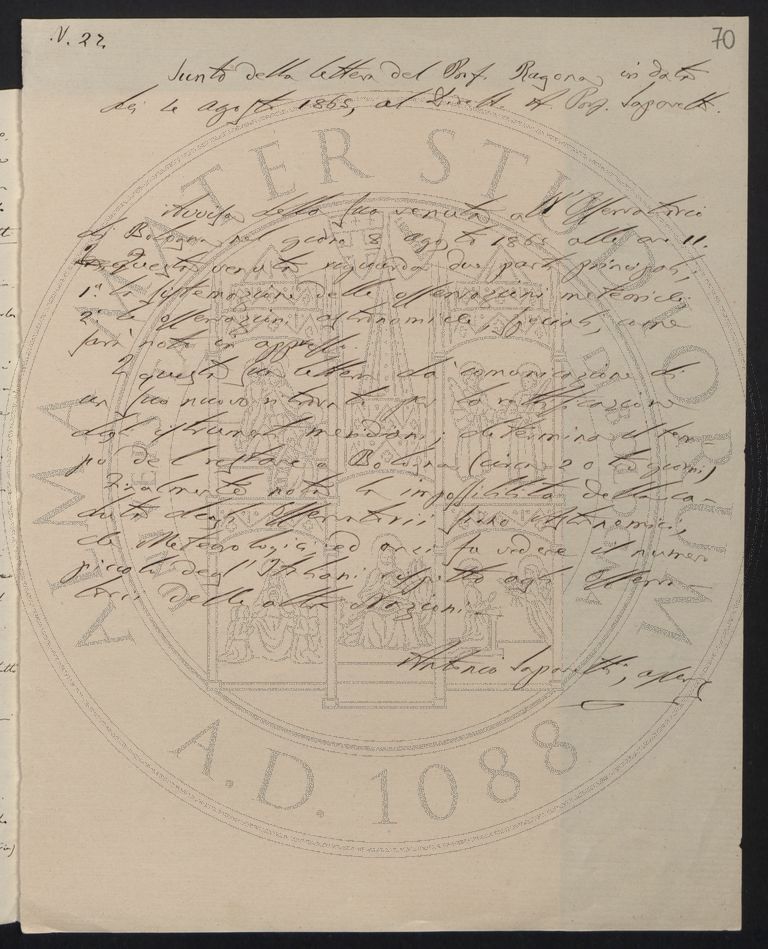 N. 27.
70
Sunto della lettera del Prof. Ragona, in data
dei 4 agosto 1865, al Dirett. A. Prof. Saporetti.
Avvisa della sua venuta all'Osservatorio
di Bologna nel giorno 8 agosto 1865 alle ore 11.
Questa venuta riguarda due parti principali;
1.a la sistemazione delle osservazioni meteoriche
2.a le osservazioni astronomiche, speciali, come
sarà noto in appresso.
In questa sua lettera dà comunicazione di
un suo nuovo ritrovato per la rettificazione
degli istrumenti meridiani; determina il tem-
po del restare a Bologna (circa 20 giorni)
Finalmente nota la impossibilità della ca-
duta degli Osservatorii fisico astronomici,
e di Meteorologia, ed anzi fa vedere il numero
piccolo degl'Italiani rispetto agli Osserva-
torii delle altre Nazioni.
Antonio Saporetti,
ALMA MATER STUDIORUM
A.D. 1088